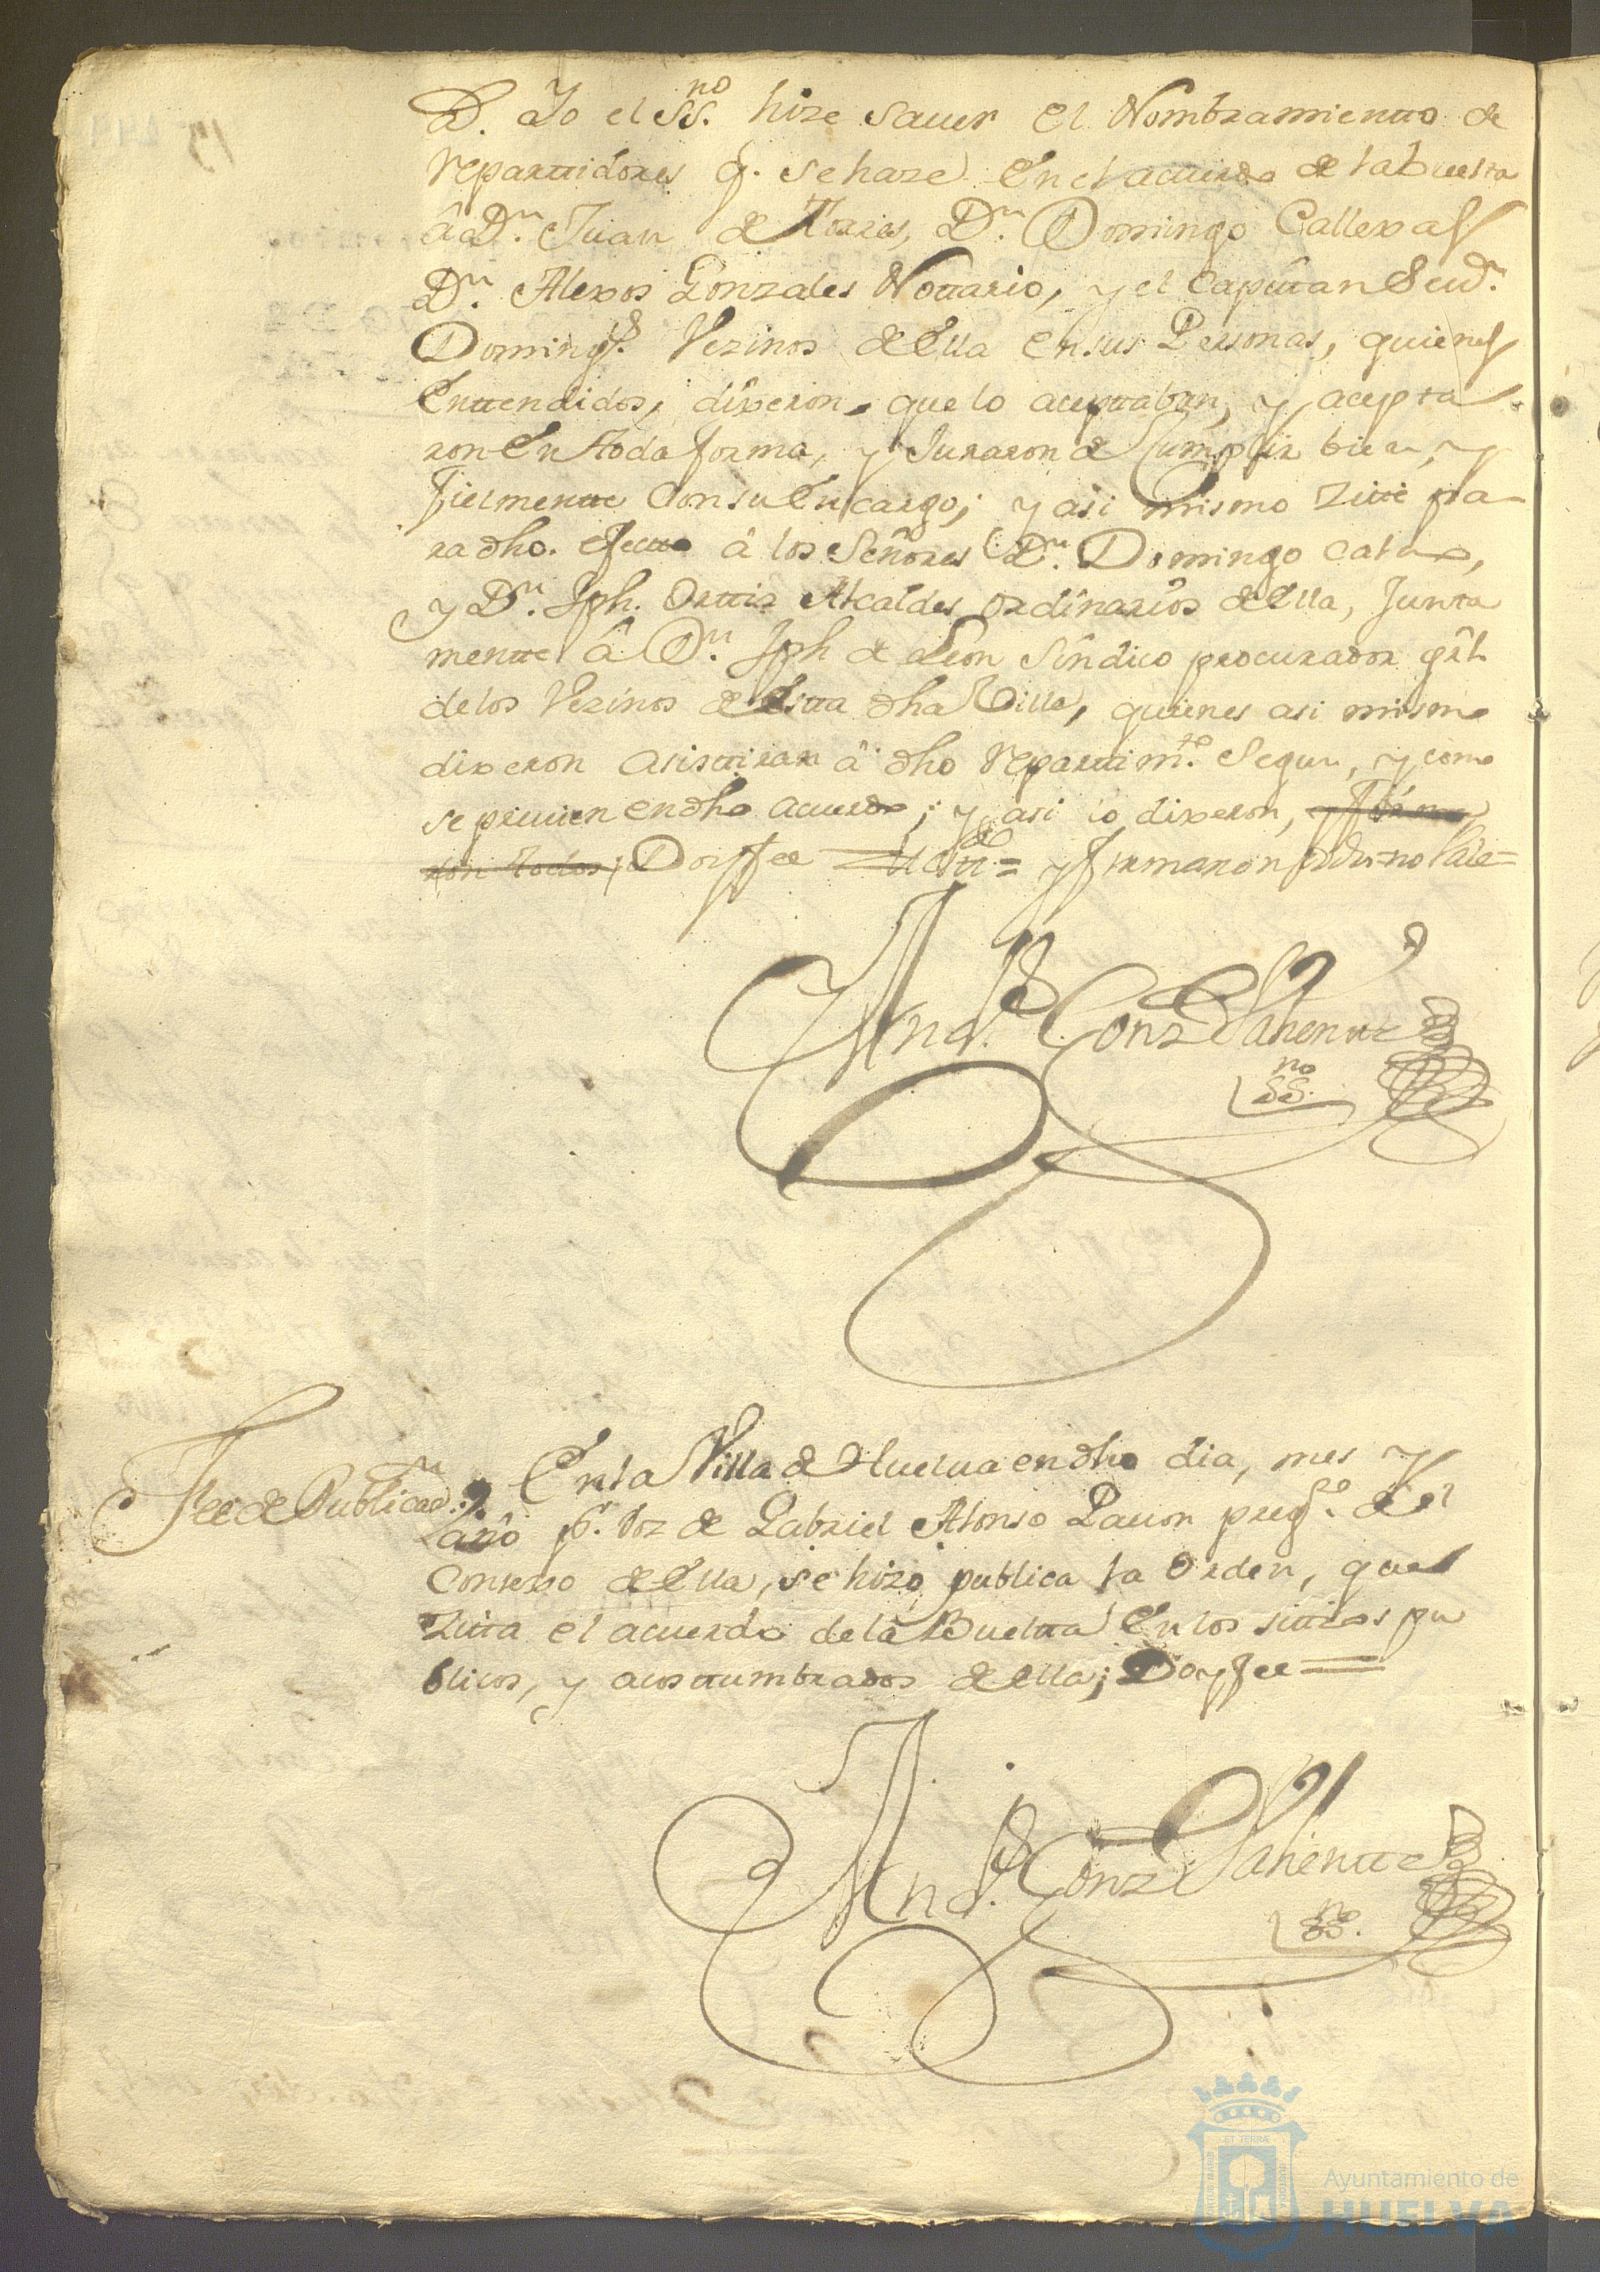 D. Io el SS.no hize sauer el Nombramientto de
reparttidores q. se haze En el acuerdo de la buelta
â D.n Juan de Torres, D.n Domingo Callexas
D.n Alexos Gonzales Nottario, y el Capittan Seu.n
Doming.s Vezinos de Ella en sus Personas, quienes
Enttendidos, dixeron, que lo acepttaban, y acepta
ron En ttoda forma, y Juraron de Cumplir bien, y
fielmentte Con su Encargo; y asi mismo zitté pa-
ra dho. efectto â los Señores D.n Domingo
y D.n Jph. Orttiz Alcaldes ordinarios de Ella, Junta
mentte â D.n Jph de Leon Sindico procurador grl.
de los Vezinos de Estta dha Villa, quienes asi mismo
dixeron asisttiran â dho reparttim.to Segun, y como
se preuien en dho acuerdo; y asi lo dixeron, y firma
ron todos, Doy fee = = y firmaron = no Vale =
And.s Gonz Valientte
SS.no
Fee de Publicaz.n
En la Villa de Huelua en dho dia, mes y
año p.r voz de Gabriel Alonso Pauon preg.o de el
Consexo de Ella, se hizo publica la Orden, que
zitta el acuerdo de la Bueltta En los sittios pu
blicos, y acosttumbrados de Ella; Doy fee =
And.s Gonz Valientte
SS.no
Ayuntamiento de
HUELVA